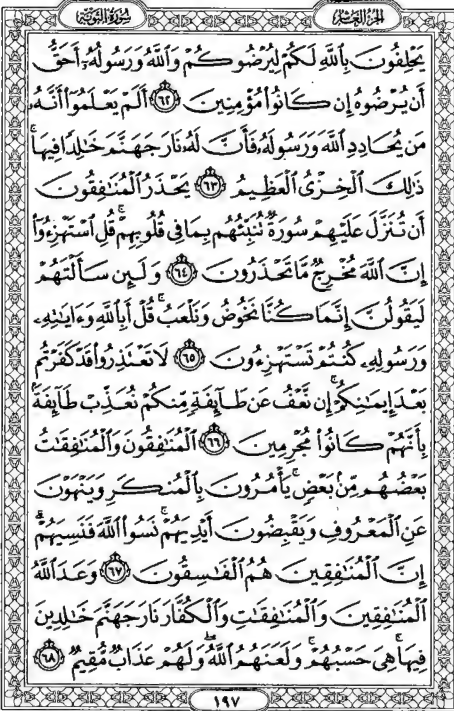 سُورَةُ التَّوْبَةِ
الجُزءُ العَاشِرُ
يَحْلِفُونَ بِٱللَّهِ لَكُمْ لِيُرْضُوكُمْ وَٱللَّهُ وَرَسُولُهُۥٓ أَحَقُّ
أَن يُرْضُوهُ إِن كَانُوا۟ مُؤْمِنِينَ ٦٢ أَلَمْ يَعْلَمُوٓا۟ أَنَّهُۥ
مَن يُحَادِدِ ٱللَّهَ وَرَسُولَهُۥ فَأَنَّ لَهُۥ نَارَ جَهَنَّمَ خَٰلِدًا فِيهَا ۚ
ذَٰلِكَ ٱلْخِزْىُ ٱلْعَظِيمُ ٦٣ يَحْذَرُ ٱلْمُنَٰفِقُونَ
أَن تُنَزَّلَ عَلَيْهِمْ سُورَةٌ تُنَبِّئُهُم بِمَا فِى قُلُوبِهِمْ ۚ قُلِ ٱسْتَهْزِءُوٓا۟
إِنَّ ٱللَّهَ مُخْرِجٌ مَّا تَحْذَرُونَ ٦٤ وَلَئِن سَأَلْتَهُمْ
لَيَقُولُنَّ إِنَّمَا كُنَّا نَخُوضُ وَنَلْعَبُ ۚ قُلْ أَبِٱللَّهِ وَءَايَٰتِهِۦ
وَرَسُولِهِۦ كُنتُمْ تَسْتَهْزِءُونَ ٦٥ لَا تَعْتَذِرُوا۟ قَدْ كَفَرْتُم
بَعْدَ إِيمَٰنِكُمْ ۚ إِن نَّعْفُ عَن طَآئِفَةٍ مِّنكُمْ نُعَذِّبْ طَآئِفَةًۢ
بِأَنَّهُمْ كَانُوا۟ مُجْرِمِينَ ٦٦ ٱلْمُنَٰفِقُونَ وَٱلْمُنَٰفِقَٰتُ
بَعْضُهُم مِّنۢ بَعْضٍ ۚ يَأْمُرُونَ بِٱلْمُنكَرِ وَيَنْهَوْنَ
عَنِ ٱلْمَعْرُوفِ وَيَقْبِضُونَ أَيْدِيَهُمْ ۚ نَسُوا۟ ٱللَّهَ فَنَسِيَهُمْ ۗ
إِنَّ ٱلْمُنَٰفِقِينَ هُمُ ٱلْفَٰسِقُونَ ٦٧ وَعَدَ ٱللَّهُ
ٱلْمُنَٰفِقِينَ وَٱلْمُنَٰفِقَٰتِ وَٱلْكُفَّارَ نَارَ جَهَنَّمَ خَٰلِدِينَ
فِيهَا ۚ هِىَ حَسْبُهُمْ ۚ وَلَعَنَهُمُ ٱللَّهُ ۖ وَلَهُمْ عَذَابٌ مُّقِيمٌ ٦٨
١٩٧